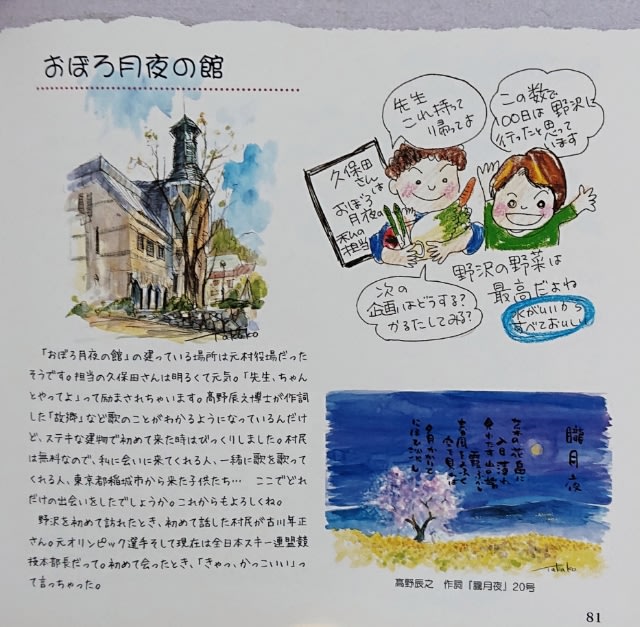 おぼろ月夜の館
Takako
先生
これ持って
帰ってよ
この数で
100日は野沢に
行ったと思って
います
久保田
さん
は
おぼろ
月夜の
私の
担当
次の
企画はどうする?
かるたしてみる?
野沢の野菜は
最高だよね
水がいいから
すべておいしい
「おぼろ月夜の館」の建っている場所は元村役場だった
そうです。担当の久保田さんは明るくて元気。「先生、ちゃん
とやってよ」って励まされちゃいます。高野辰之博士が作詞
した「故郷」など歌のことがわかるようになっているんだけ
ど、ステキな建物で初めて来た時はびっくりしました。村民
は無料なので、私に会いに来てくれる人、一緒に歌を歌って
くれる人、東京都稲城市から来た子供たち… ここでどれ
だけの出会いをしたでしょうか。これからもよろしくね。
野沢を初めて訪れたとき、初めて話した村民が古川年正
さん。元オリンピック選手そして現在は全日本スキー連盟競
技本部長だって。初めて会ったとき、「きゃっ、かっこいい」っ
て言っちゃった。
朧月夜
菜の花畠に
入日薄れ
見わたす山の端
霞ふかし
春風そよふく
空を見れば
夕月かかりて
にほひ淡し
Takako
高野辰之 作詞「朧月夜」20号
81